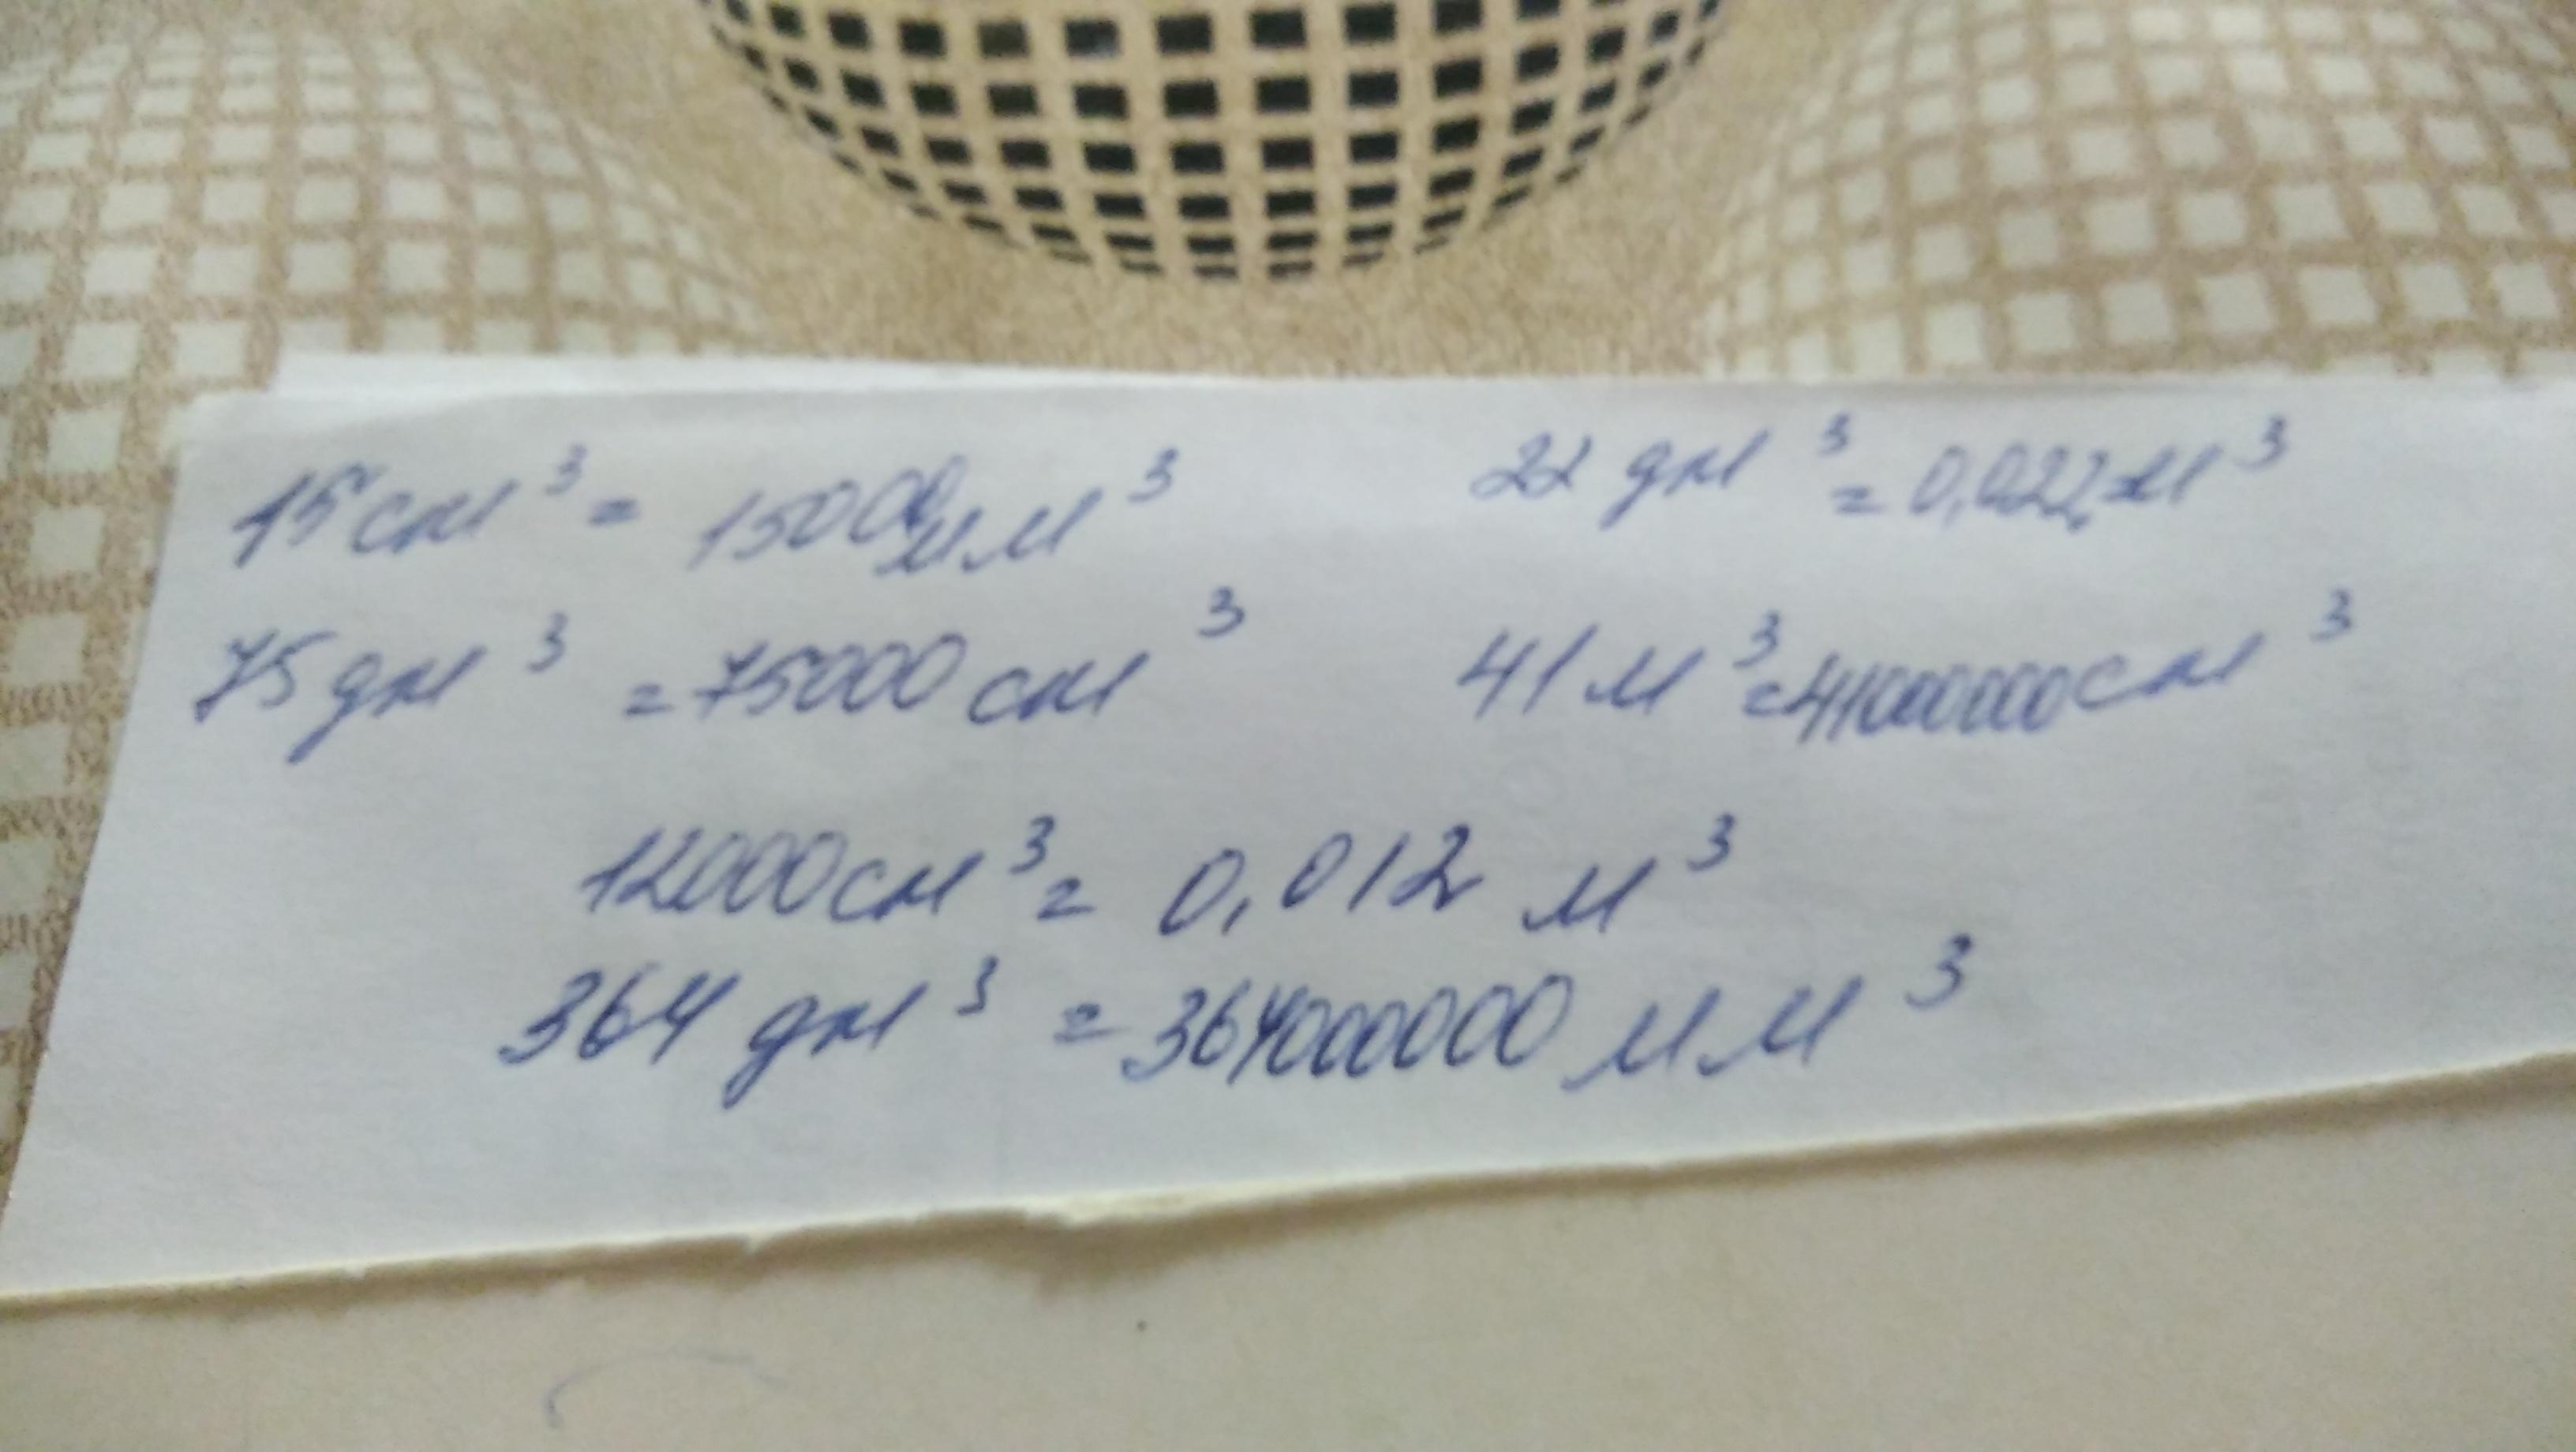 15 см³ = 15000 мм³
22 дм³ = 0,022 м³
75 дм³ = 75000 см³
41 м³ = 41000000 см³
12000 см³ = 0,012 м³
364 дм³ = 364000000 мм³